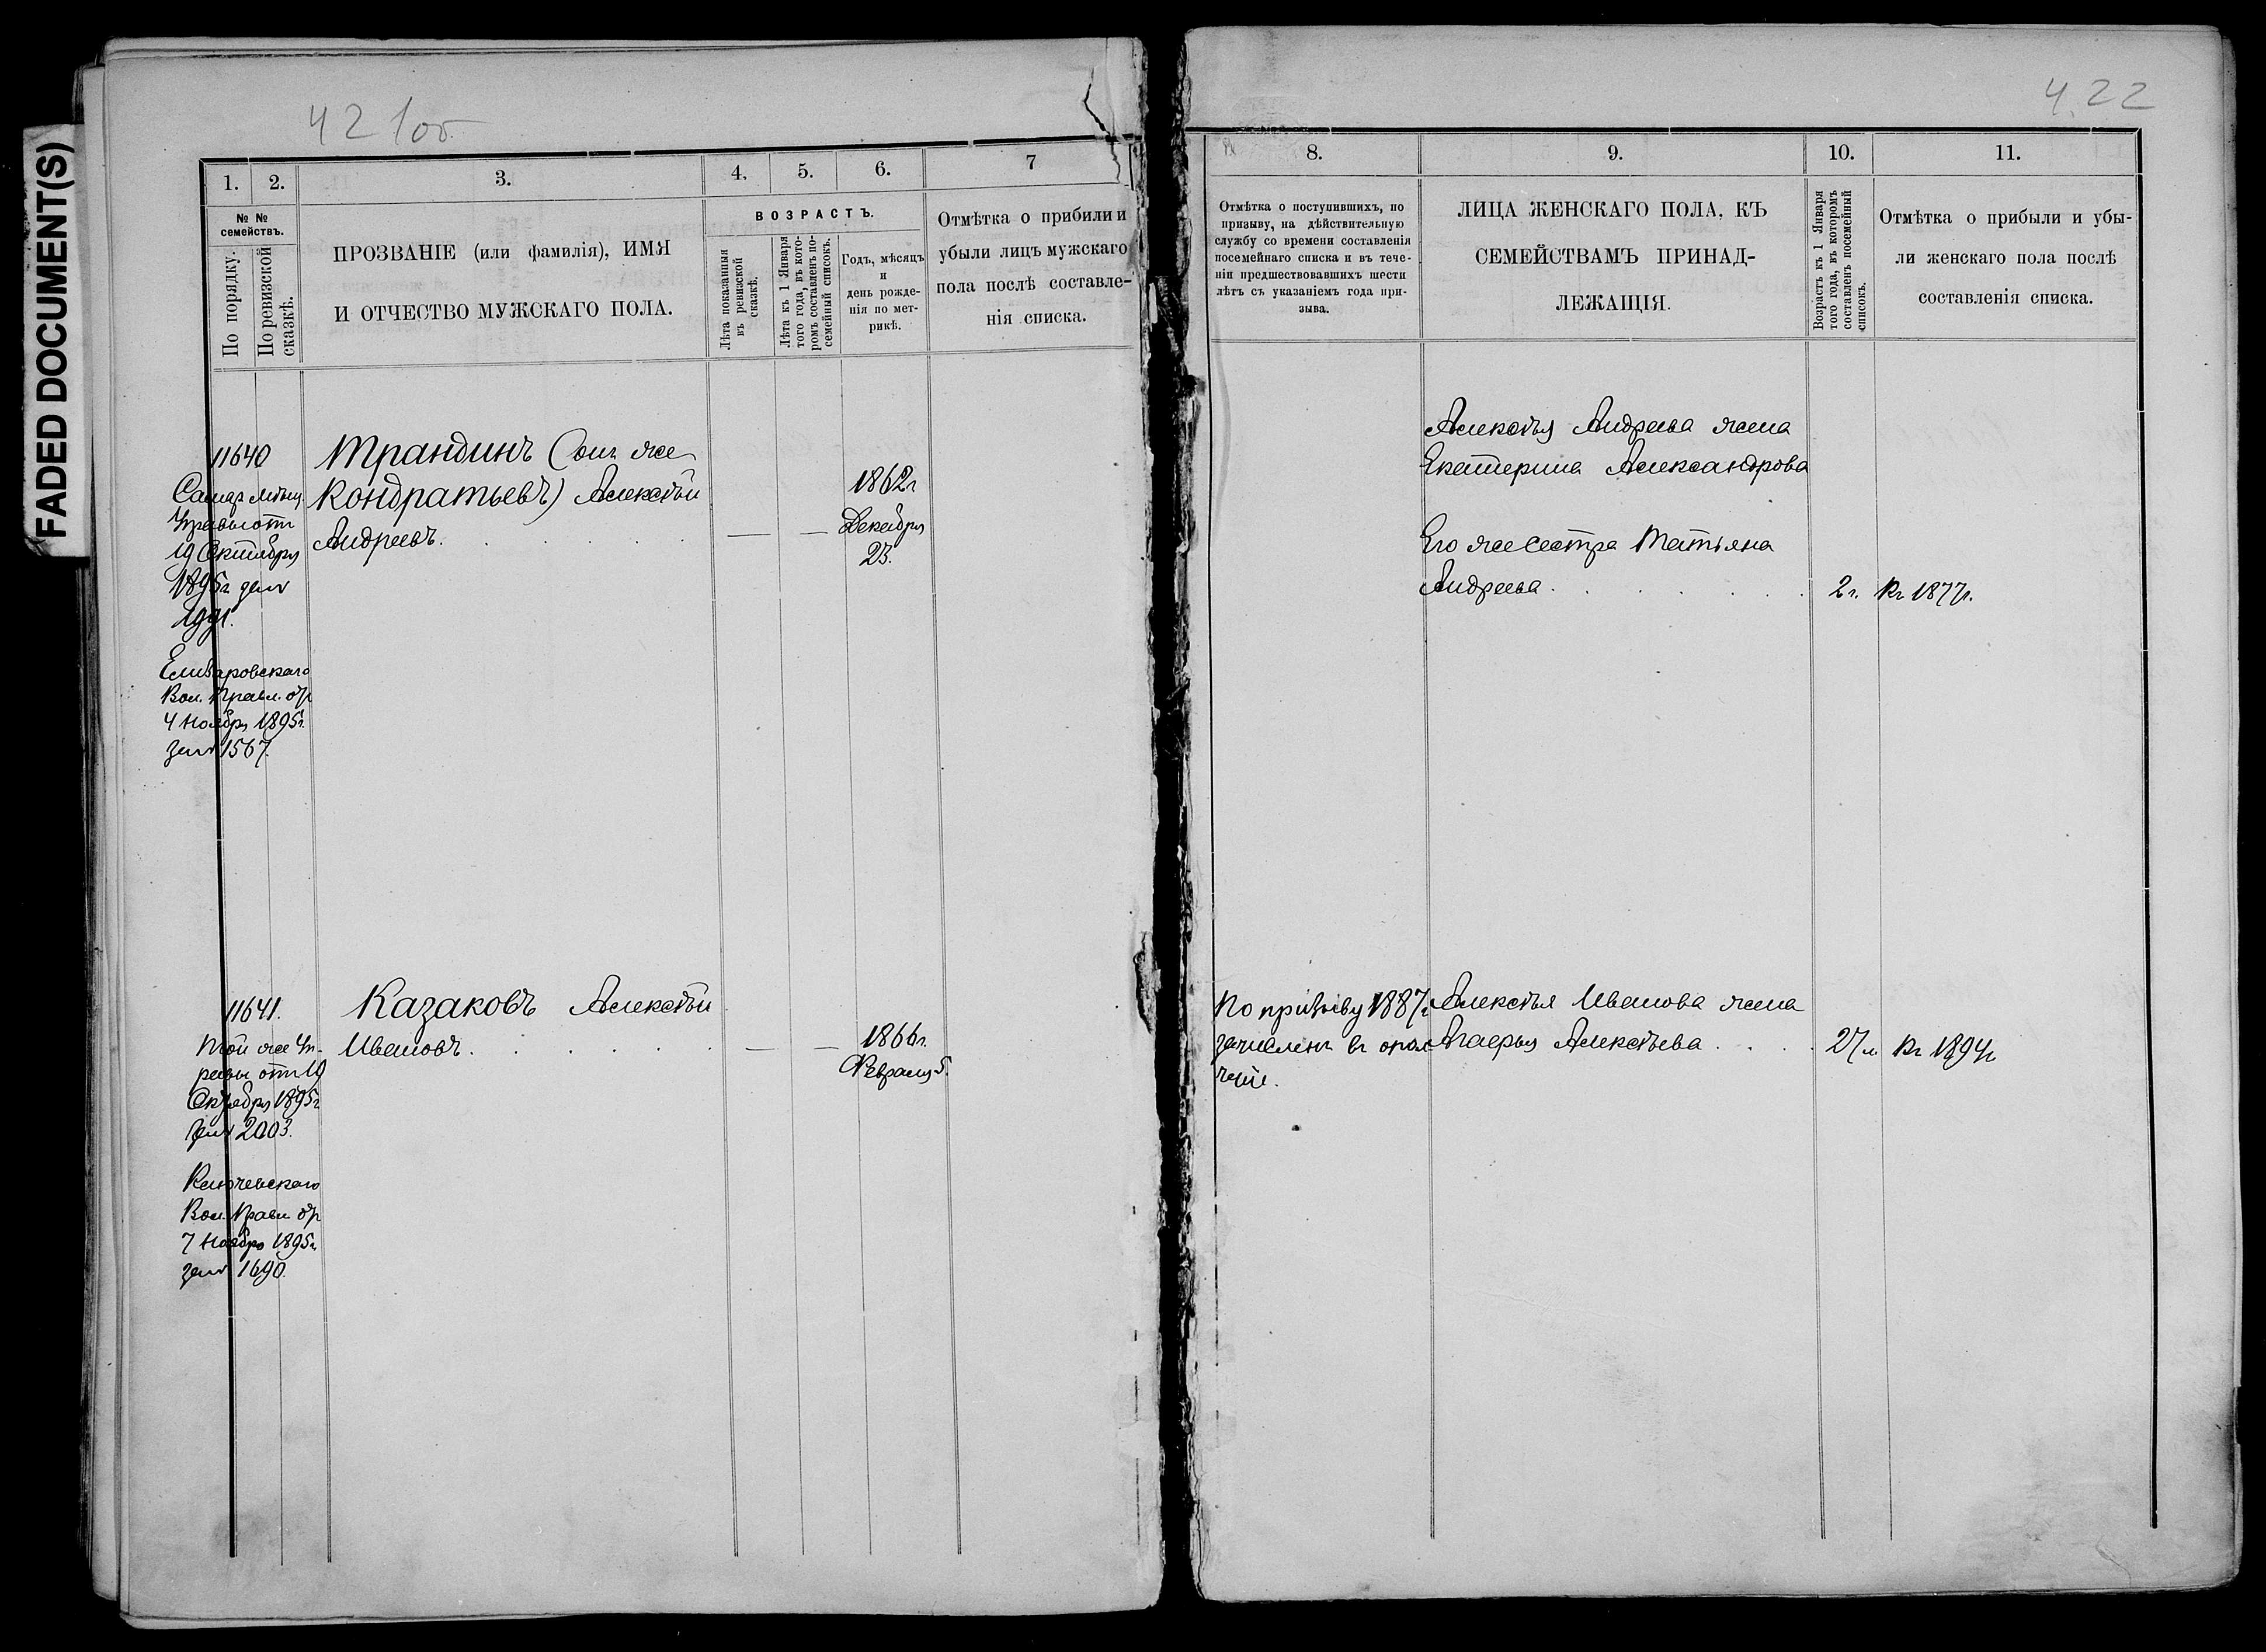 FADED DOCUMENT(S)
421об
1. 2. 3. 4. 5. 6. 7
№ № семействъ.
По порядку.
По ревизской сказкѣ.
ПРОЗВАНІЕ (или фамилія), ИМЯ
И ОТЧЕСТВО МУЖСКАГО ПОЛА.
ВОЗРАСТЪ.
Лѣта показанныя
въ ревизской
сказкѣ.
Лѣта къ 1 Января
того года, въ кото-
ромъ составленъ по-
семейный списокъ.
Годъ, мѣсяцъ
и
день рожде-
нія по мет-
рикѣ.
Отмѣтка о прибили и
убыли лицъ мужскаго
пола послѣ составле-
нія списка.
11640
Самар мѣщ.
Управы отъ
19 Октября
1895г за №
1991.
Елшаровскаго
Вол. Правл. отъ
4 Ноября 1895г.
за № 1567.
Трандинъ (онъ же
Кондратьевъ) Алексѣй
Андреевъ.
1862г
Декабря
23.
11641.
Той же Уп-
равы отъ 19
Октября 1895г
за № 2003.
Ключевскаго
Вол. Правл. отъ
7 Ноября 1895г
за № 1690.
Казаковъ Алексѣй
Ивановъ.
1866г.
Февраля 5.
422
8. 9. 10. 11.
Отмѣтка о поступившихъ, по
призыву, на дѣйствительную
службу со времени составленія
посемейнаго списка и въ тече-
ніи предшествовавшихъ шести
лѣтъ съ указаніемъ года при-
зыва.
ЛИЦА ЖЕНСКАГО ПОЛА, КЪ
СЕМЕЙСТВАМЪ ПРИНАД-
ЛЕЖАЩІЯ.
Возрастъ къ 1 Января
того года, въ которомъ
составленъ посемейный
списокъ.
Отмѣтка о прибыли и убы-
ли женскаго пола послѣ
составленія списка.
Алексѣя Андреева жена
Екатерина Александрова
Его же сестра Татьяна
Андреева. 2г. Къ 1877г.
По призыву 1887г
зачисленъ въ опол
ченіе.
Алексѣя Иванова жена
Агафья Алексѣева 27л Къ 1894г